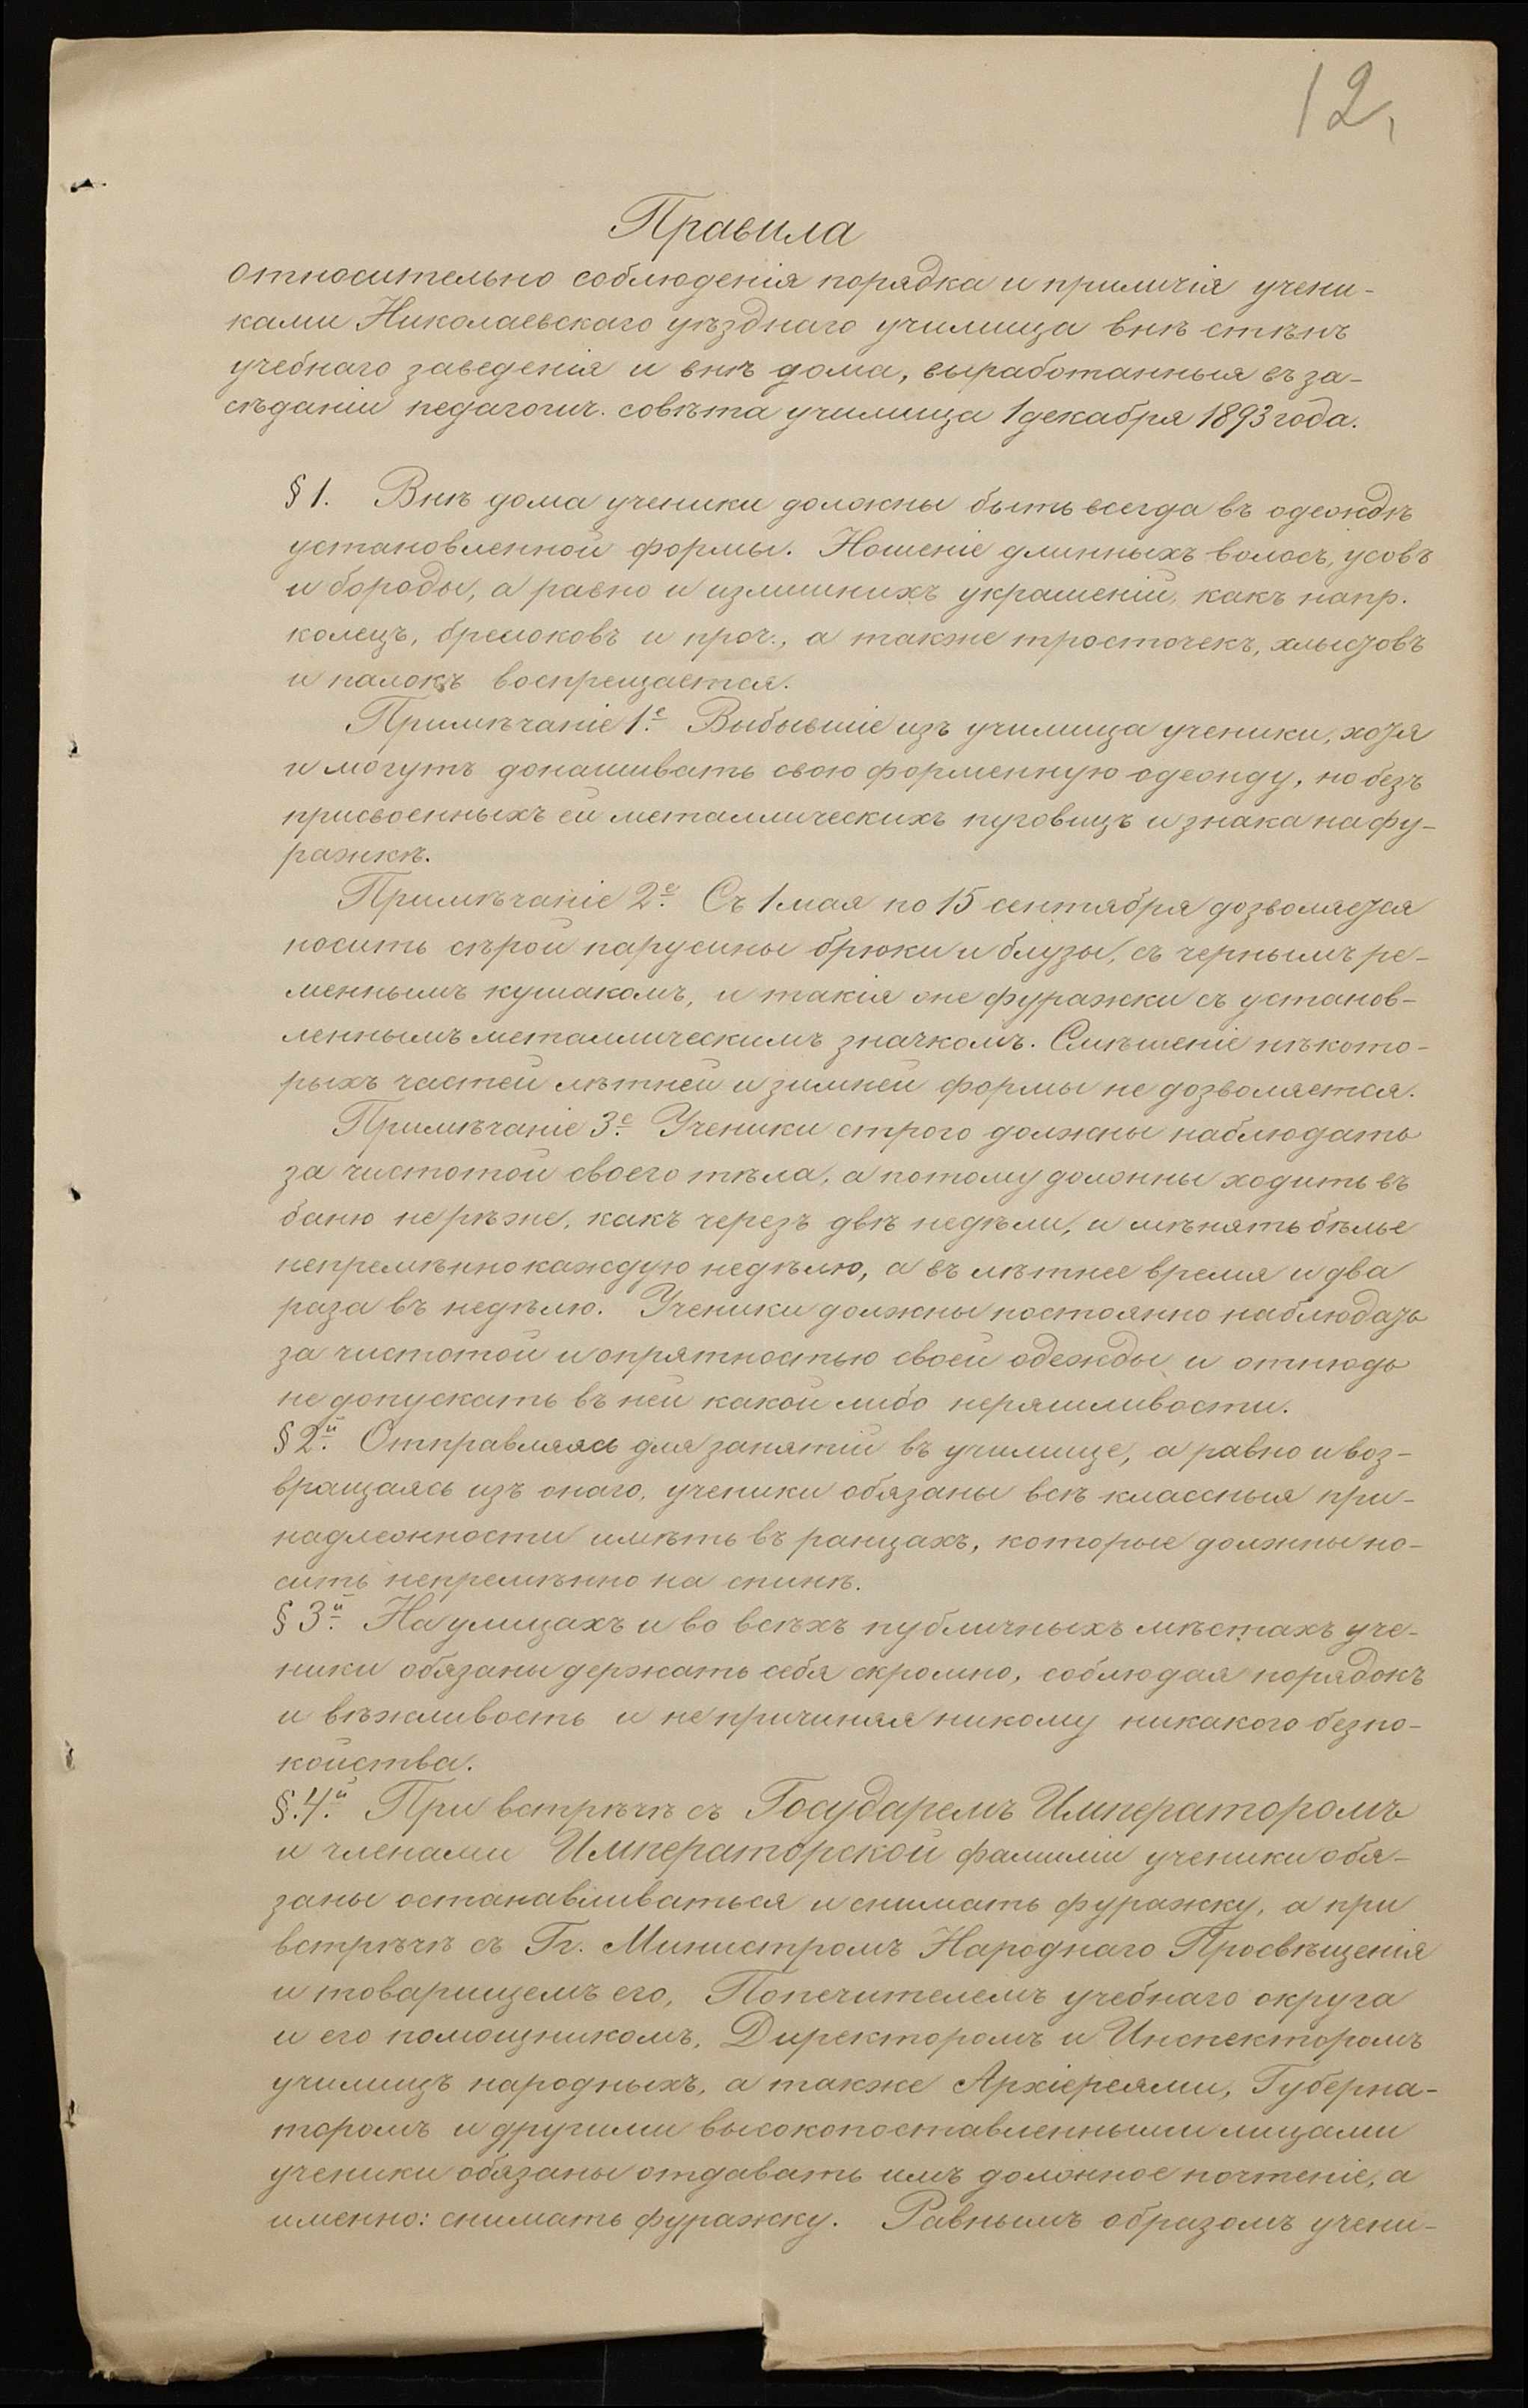 12,
Правила
относительно соблюденія порядка и приличія учени-
ками Николаевскаго уѣзднаго училища внѣ стѣнъ
учебнаго заведенія и внѣ дома, выработанныя въ за-
сѣданіи педагогич. совѣта училища 1 декабря 1893 года.
§ 1. Внѣ дома ученики должны быть всегда въ одеждѣ
установленной формы. Ношеніе длинныхъ волосъ, усовъ
и бороды, а равно и излишнихъ украшеній, какъ напр.
колецъ, брелоковъ и проч., а также тросточекъ, хлыстовъ
и палокъ воспрещается.
Примѣчаніе 1е. Выбывшіе изъ училища ученики, хотя
и могутъ донашивать свою форменную одежду, но безъ
присвоенныхъ ей металлическихъ пуговицъ и знака на фу-
ражкѣ.
Примѣчаніе 2е. Съ 1 мая по 15 сентября дозволяется
носить сѣрой парусины брюки и блузы, съ чернымъ ре-
меннымъ кушакомъ, и такія же фуражки съ установ-
леннымъ металлическимъ значкомъ. Смѣшеніе нѣкото-
рыхъ частей лѣтней и зимней формы не дозволяется.
Примѣчаніе 3е. Ученики строго должны наблюдать
за чистотой своего тѣла, а потому должны ходить въ
баню не рѣже, какъ черезъ двѣ недѣли, и мѣнять бѣлье
непремѣнно каждую недѣлю, а въ лѣтнее время и два
раза въ недѣлю. Ученики должны постоянно наблюдать
за чистотой и опрятностью своей одежды и отнюдь
не допускать въ ней какой либо неряшливости.
§ 2й. Отправляясь для занятій въ училище, а равно и воз-
вращаясь изъ онаго, ученики обязаны всѣ классныя при-
надлежности имѣть въ ранцахъ, которые должны но-
сить непремѣнно на спинѣ.
§ 3й. На улицахъ и во всѣхъ публичныхъ мѣстахъ уче-
ники обязаны держать себя скромно, соблюдая порядокъ
и вѣжливость и не причиняя никому никакого безпо-
койства.
§. 4й. При встрѣчѣ съ Государемъ Императоромъ
и членами Императорской фамиліи ученики обя-
заны останавливаться и снимать фуражку, а при
встрѣчѣ съ Гг. Министромъ Народнаго Просвѣщенія
и товарищемъ его, Попечителемъ учебнаго округа
и его помощникомъ, Директоромъ и Инспекторомъ
училищъ народныхъ, а также Архіереями, Губерна-
торомъ и другими высокопоставленными лицами
ученики обязаны отдавать имъ должное почтеніе, а
именно: снимать фуражку. Равнымъ образомъ учени-